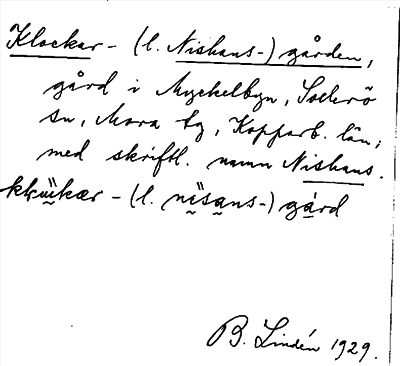 Klockar- (l. Nishans-) gården,
gård i Myckelbyn, Sollerö
sn, Mora tg, Kopparb. län;
med skriftl. namn Nishans.
- (l. nisans-) gård
B. Lindén 1929.